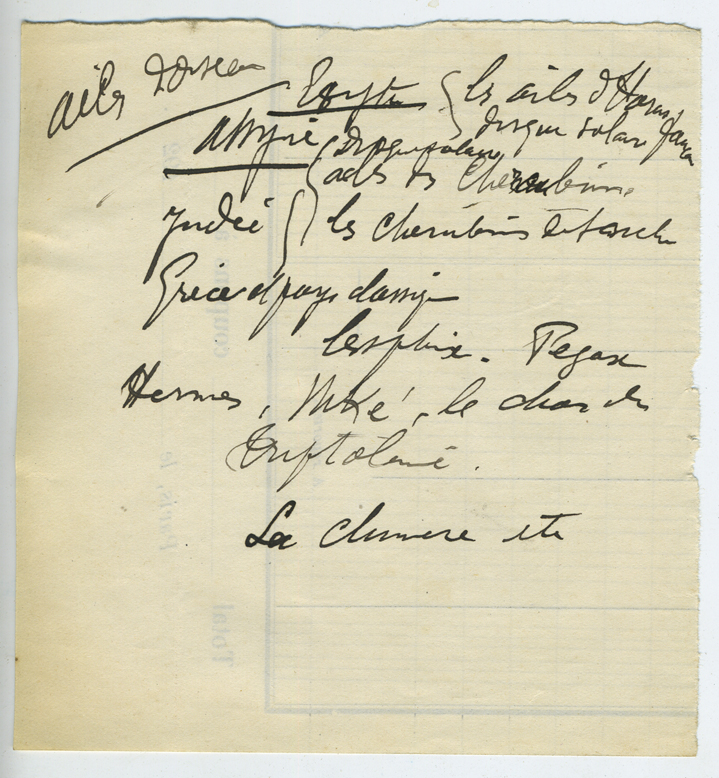 ailes d'oiseau
Egypte { les ailes d'Horus,
disque solaire
Assyrie { disque solaire
ailes des Cherubins
Judée { les cherubins de l'arche
Grèce et pays classiq
le sphinx. Pegase
Hermes, Niké, le char de
Triptoleme.
La chimere etc